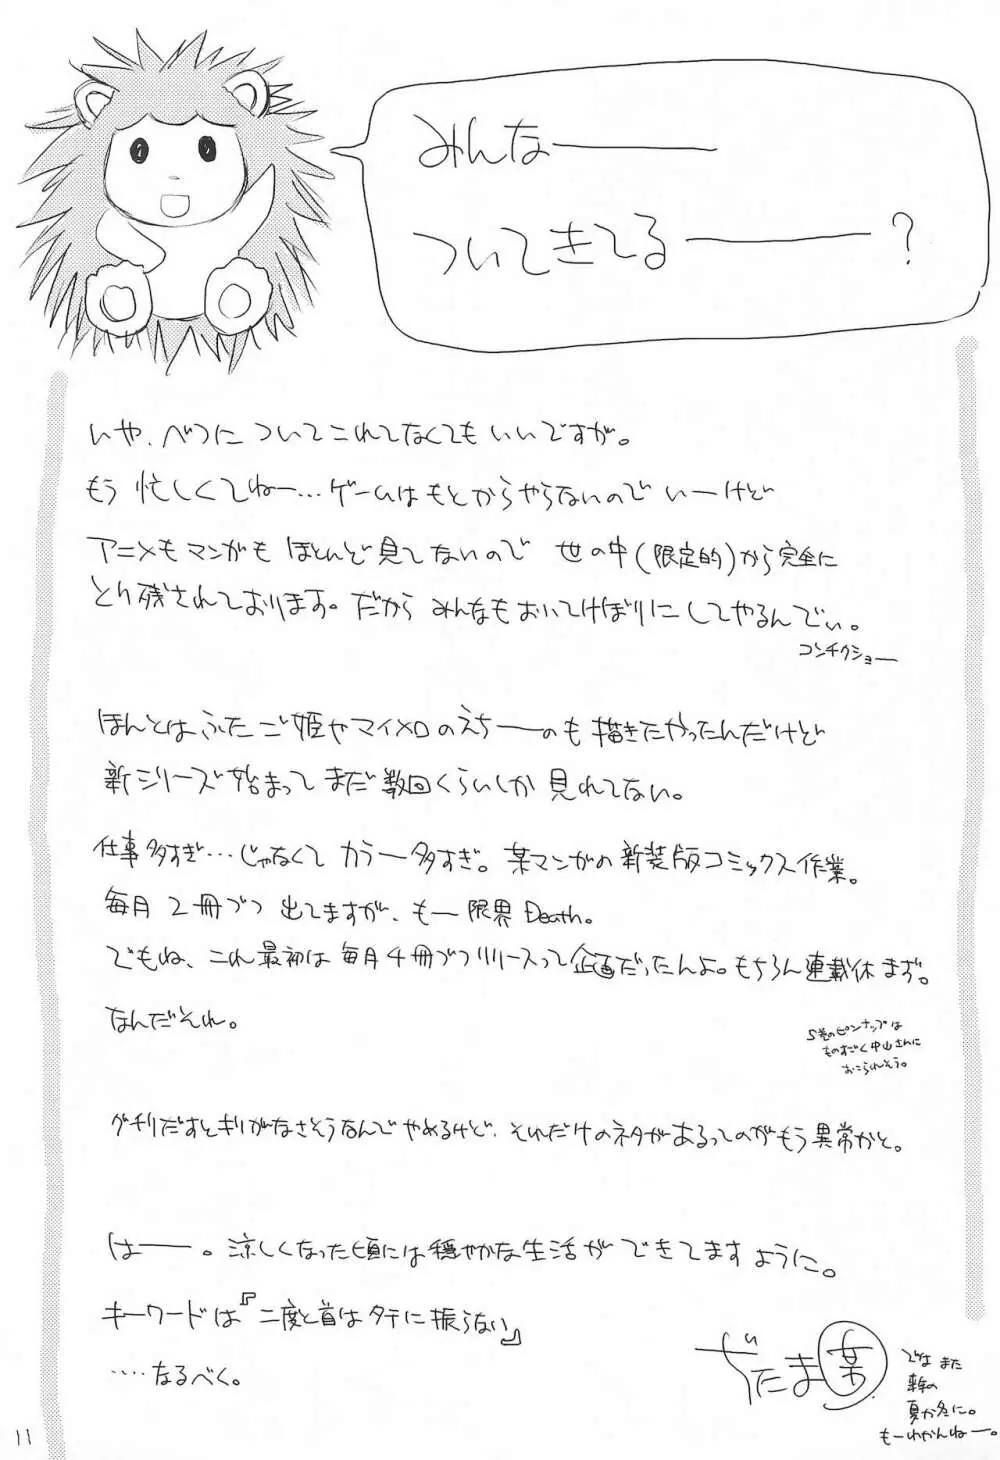 みんな———
ついてきてる———?
いや、べつについてこれてなくてもいいですが。
もう忙しくてねー…ゲームはもとからやらないのでいーけど
アニメもマンガもほとんど見てないので 世の中(限定的)から完全に
とり残されております。だからみんなもおいてけぼりにしてやるんでぃ。
コンチクショー
ほんとはふたご姫やマイメロのえちーのも描きたかったんだけど
新シリーズ始まってまだ数回くらいしか見れてない。
仕事多すぎ…じゃなくてカラー多すぎ。某マンガの新装版コミックス作業。
毎月2冊づつ出てますが、もー限界Death。
でもね、これ最初は毎月4冊づつリリースって企画だったんよ。もちろん連載休まず。
なんだそれ。
5巻のピンナップは
ものすごく中山さんに
おこられそう。
グチりだすとキリがなさそうなんでやめるけど、それだけのネタがあるってのがもう異常かと。
はーー。涼しくなった頃には穏やかな生活ができてますように。
キーワードは『二度と首はタテに振らない』
‥‥なるべく。
ぢたま某
ではまた
来年の
夏か冬に。
もーわかんねー。
11